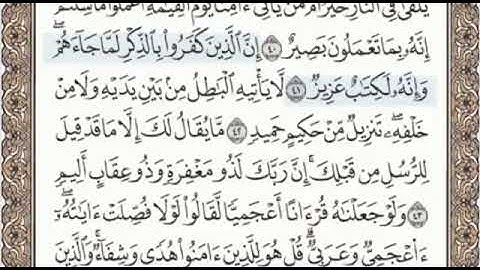 يُلْقَىٰ فِى ٱلنَّارِ خَيْرٌ أَم مَّن يَأْتِىٓ ءَامِنًا يَوْمَ ٱلْقِيَٰمَةِ ٱعْمَلُوا۟ مَا شِئْتُمْ
إِنَّهُۥ بِمَا تَعْمَلُونَ بَصِيرٌ ٤٠ إِنَّ ٱلَّذِينَ كَفَرُوا۟ بِٱلذِّكْرِ لَمَّا جَآءَهُمْ ۖ
وَإِنَّهُۥ لَكِتَٰبٌ عَزِيزٌ ٤١ لَّا يَأْتِيهِ ٱلْبَٰطِلُ مِنۢ بَيْنِ يَدَيْهِ وَلَا مِنْ
خَلْفِهِۦ ۖ تَنزِيلٌ مِّنْ حَكِيمٍ حَمِيدٍ ٤٢ مَّا يُقَالُ لَكَ إِلَّا مَا قَدْ قِيلَ
لِلرُّسُلِ مِن قَبْلِكَ ۚ إِنَّ رَبَّكَ لَذُو مَغْفِرَةٍ وَذُو عِقَابٍ أَلِيمٍ
٤٣ وَلَوْ جَعَلْنَٰهُ قُرْءَانًا أَعْجَمِيًّا لَّقَالُوا۟ لَوْلَا فُصِّلَتْ ءَايَٰتُهُۥٓ ۖ
ءَا۬عْجَمِىٌّ وَعَرَبِىٌّ ۗ قُلْ هُوَ لِلَّذِينَ ءَامَنُوا۟ هُدًى وَشِفَآءٌ ۖ وَٱلَّذِينَ